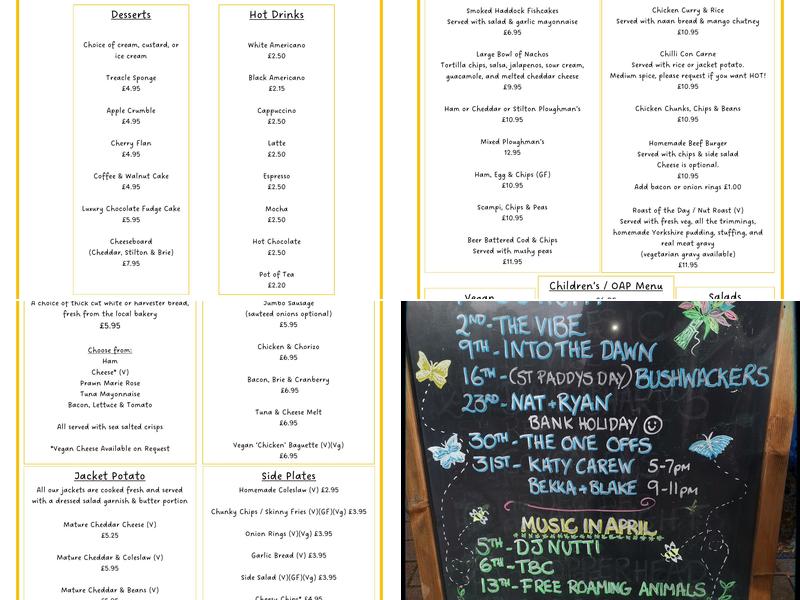 Desserts
Choice of cream, custard, or
ice cream
Treacle Sponge
£4.95
Apple Crumble
£4.95
Cherry Flan
£4.95
Coffee & Walnut Cake
£4.95
Luxury Chocolate Fudge Cake
£5.95
Cheeseboard
(Cheddar, Stilton & Brie)
£7.95
Hot Drinks
White Americano
£2.50
Black Americano
£2.15
Cappuccino
£2.50
Latte
£2.50
Espresso
£2.50
Mocha
£2.50
Hot Chocolate
£2.50
Pot of Tea
£2.20
Smoked Haddock Fishcakes
Served with salad & garlic mayonnaise
£6.95
Large Bowl of Nachos
Tortilla chips, salsa, jalapenos, sour cream,
guacamole, and melted cheddar cheese
£9.95
Ham or Cheddar or Stilton Ploughman's
£10.95
Mixed Ploughman's
12.95
Ham, Egg & Chips (GF)
£10.95
Scampi, Chips & Peas
£10.95
Beer Battered Cod & Chips
Served with mushy peas
£11.95
Chicken Curry & Rice
Served with naan bread & mango chutney
£10.95
Chilli Con Carne
Served with rice or jacket potato.
Medium spice, please request if you want HOT!
£10.95
Chicken Chunks, Chips & Beans
£10.95
Homemade Beef Burger
Served with chips & side salad
Cheese is optional.
£10.95
Add bacon or onion rings £1.00
Roast of the Day / Nut Roast (V)
Served with fresh veg, all the trimmings,
homemade Yorkshire pudding, stuffing, and
real meat gravy
(vegetarian gravy available)
£11.95
Children's / OAP Menu
Vegan
Salads
A choice of thick cut white or harvester bread,
fresh from the local bakery
£5.95
Choose from:
Ham
Cheese* (V)
Prawn Marie Rose
Tuna Mayonnaise
Bacon, Lettuce & Tomato
All served with sea salted crisps
*Vegan Cheese Available on Request
Jumbo Sausage
(sauteed onions optional)
£5.95
Chicken & Chorizo
£6.95
Bacon, Brie & Cranberry
£6.95
Tuna & Cheese Melt
£6.95
Vegan 'Chicken' Baguette (V)(Vg)
£6.95
Jacket Potato
All our jackets are cooked fresh and served
with a dressed salad garnish & butter portion
Mature Cheddar Cheese (V)
£5.25
Mature Cheddar & Coleslaw (V)
£5.95
Mature Cheddar & Beans (V)
Side Plates
Homemade Coleslaw (V) £2.95
Chunky Chips / Skinny Fries (V)(GF)(Vg) £3.95
Onion Rings (V)(Vg) £3.95
Garlic Bread (V) £3.95
Side Salad (V)(GF)(Vg) £3.95
Cheesy Chips* £4.95
2ND - THE VIBE
9TH - INTO THE DAWN
16TH - (ST PADDYS DAY) BUSHWACKERS
23RD - NAT + RYAN
BANK HOLIDAY
30TH - THE ONE OFFS
31ST - KATY CAREW 5-7pm
BEKKA + BLAKE 9-11pm
MUSIC IN APRIL
5TH - DJ NUTTI
6TH - TBC
13TH - FREE ROAMING ANIMALS